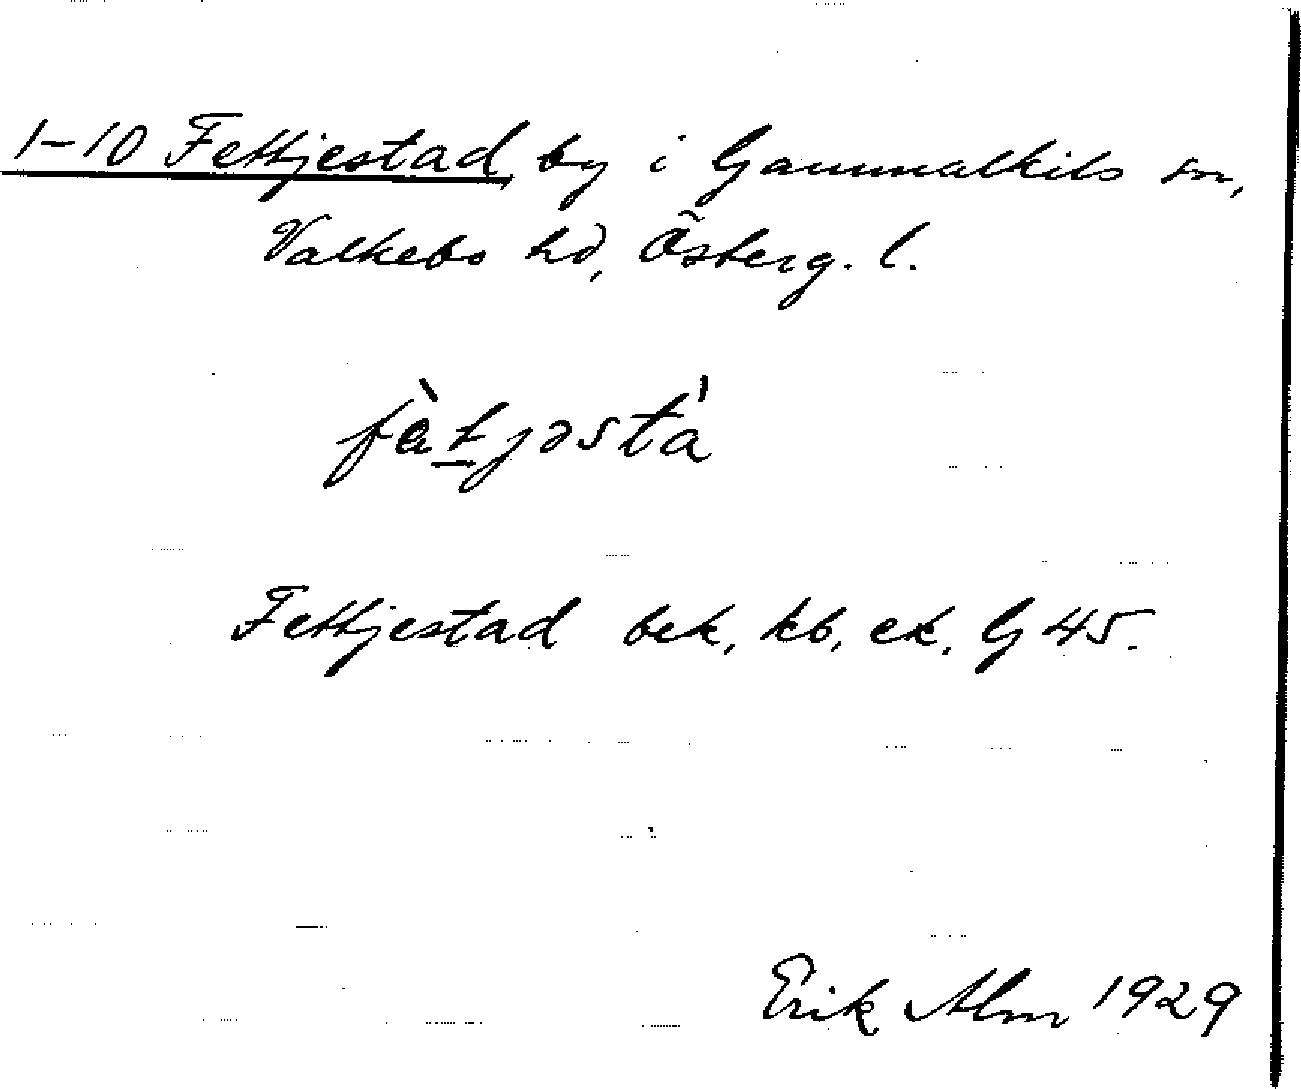 1-10 Fettjestad by i Gammalkils sn,
Valkebo hd, Österg. l.
fà̠t̠jəsta̍
Fettjestad bek, kb, ek, G 45.
Erik Alm 1929